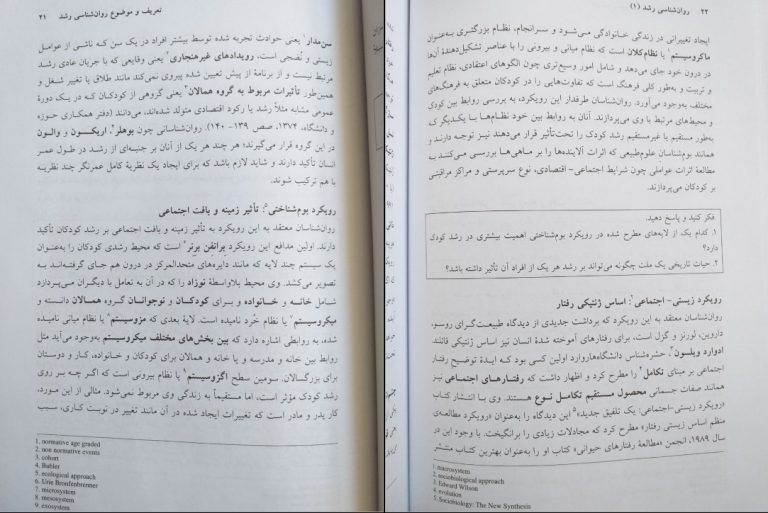 تعریف و موضوع روان‌شناسی رشد ۲۱
سن‌مدار¹ یعنی حوادث تجربه شده توسط بیشتر افراد در یک سن که ناشی از عوامل
زیستی و نُضجی است، رویدادهای غیرهنجاری² یعنی وقایعی که با جریان عادی رشد
مرتبط نیست و از برنامهٔ از پیش تعیین شده پیروی نمی‌کند مانند طلاق یا تغییر شغل و
همین‌طور تأثیرات مربوط به گروه همالان³ یعنی گروهی از کودکان که در یک دورهٔ
عمومی مشابه مثلاً رشد یا رکود اقتصادی متولد شده‌اند، می‌دانند (دفتر همکاری حوزه
و دانشگاه، ۱۳۷۴، صص ۱۳۹- ۱۴۰). روان‌شناسانی چون بوهلر⁴، اریکسون و والون
در این گروه قرار می‌گیرند؛ هر چند هر یک از آنان بر جنبه‌ای از رشد در طول عمر
انسان تأکید دارند و شاید لازم باشد که برای ایجاد یک نظریهٔ کامل عمرنگر چند نظریه
با هم ترکیب شوند.
رویکرد بوم‌شناختی⁵: تأثیر زمینه و بافت اجتماعی
روان‌شناسان معتقد به این رویکرد به تأثیر زمینه و بافت اجتماعی بر رشد کودکان تأکید
دارند. اولین مدافع این رویکرد برانفن برنر⁶ است که محیط رشدی کودکان را به‌عنوان
یک سیستم چند لایه که مانند دایره‌های متحدالمرکز در درون هم جای گرفته‌اند به
تصویر می‌کشد. وی محیط بلاواسطهٔ نوزاد را که در آن به تعامل با دیگران می‌پردازد
شامل خانه و خانواده و برای کودکان و نوجوانان گروه همالان دانسته و
میکروسیستم⁷ یا نظام خُرد نامیده است. لایهٔ بعدی که مزوسیستم⁸ یا نظام میانی نامیده
شده، به روابطی اشاره دارد که بین بخش‌های مختلف میکروسیستم به‌وجود می‌آید مثل
روابط بین خانه و مدرسه و یا خانه و همالان برای کودکان و خانواده، کار و دوستان
برای بزرگسالان. سومین سطح اگزوسیستم⁹ یا نظام بیرونی است که اگر چه بر روی
رشد کودک مؤثر است، اما مستقیماً به زندگی وی مربوط نمی‌شود. مثالی از این مورد،
کار پدر و مادر است که تغییرات ایجاد شده در آن مانند تغییر در نوبت کاری، سبب
1. normative age graded
2. non normative events
3. cohort
4. Buhler
5. ecological approach
6. Urie Bronfenbrenner
7. microsystem
8. mesosystem
9. exosystem
۲۲ روان‌شناسی رشد (۱)
ایجاد تغییراتی در زندگی خانوادگی می‌شود و سرانجام، نظام بزرگتری به‌عنوان
ماکروسیستم¹ یا نظام‌کلان است که نظام میانی و بیرونی را با عناصر تشکیل‌دهندهٔ آن‌ها
در درون خود جای می‌دهد و شامل امور وسیع‌تری چون الگوهای اعتقادی، نظام تعلیم
و تربیت و به‌طور کلی فرهنگ است که تفاوت‌هایی را در کودکان متعلق به فرهنگ‌های
مختلف به‌وجود می‌آورد. روان‌شناسان طرفدار این رویکرد، به بررسی روابط بین کودک
و محیط‌های مرتبط با وی می‌پردازند. آنان به روابط بین خود نظام‌ها با یکدیگر که
به‌طور مستقیم یا غیرمستقیم رشد کودک را تحت‌تأثیر قرار می‌دهند نیز توجه دارند و
همانند بوم‌شناسان علوم‌طبیعی که اثرات آلاینده‌ها را بر ماهی‌ها بررسی می‌کنند به
مطالعهٔ اثرات عواملی چون شرایط اجتماعی- اقتصادی، نوع سرپرستی و مراکز مراقبتی
بر کودکان می‌پردازند.
فکر کنید و پاسخ دهید.
۱. کدام یک از لایه‌های مطرح شده در رویکرد بوم‌شناختی اهمیت بیشتری در رشد کودک
دارد؟
۲. حیات تاریخی یک ملت چگونه می‌تواند بر رشد هر یک از افراد آن تأثیر داشته باشد؟
رویکرد زیستی- اجتماعی²: اساس ژنتیکی رفتار
روان‌شناسان معتقد به این رویکرد که برداشت جدیدی از دیدگاه طبیعت‌گرای روسو،
داروین، لورنز و گزل است، برای رفتارهای آموخته شدهٔ انسان نیز اساس ژنتیکی قائلند
ادوارد ویلسون³، حشره‌شناس دانشگاه‌هاروارد اولین کسی بود که ایدهٔ توضیح رفتار
اجتماعی بر مبنای تکامل⁴ را مطرح کرد و اظهار داشت که رفتارهای اجتماعی نیز
همانند صفات جسمانی محصول مستقیم تکامل نوع هستند. وی با انتشار کتاب
«رویکرد زیستی-اجتماعی: یک تلفیق جدید»⁵ این دیدگاه را به‌عنوان «رویکرد مطالعه‌ی
منظم اساس زیستی رفتار» مطرح کرد که مجادلات زیادی را برانگیخت. با وجود این در
سال ۱۹۸۹، انجمن «مطالعهٔ رفتارهای حیوانی» کتاب او را به‌عنوان بهترین کتاب منتشر
1. macrosystem
2. sociobiological approach
3. Edward Wilson
4. evolution
5. Sociobiology: The New Synthesis